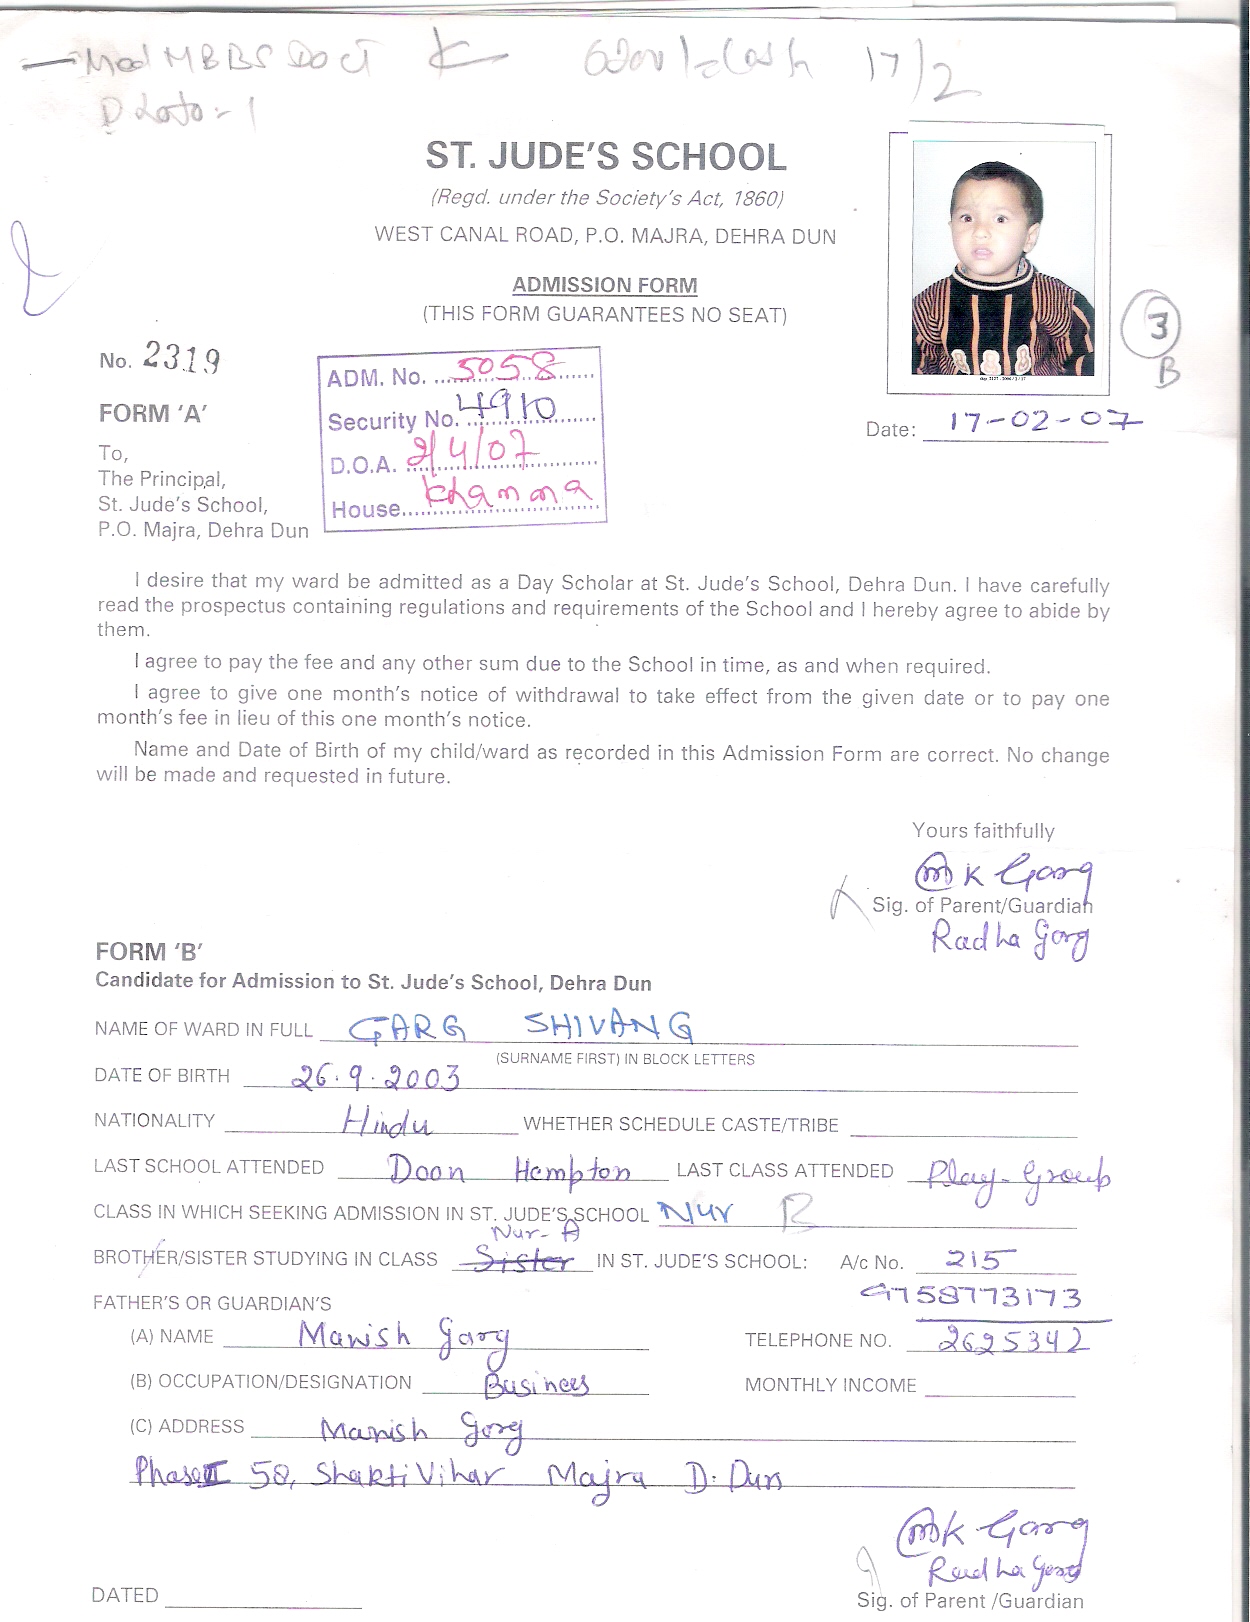 Med MBBS Doct
17/2
ST. JUDE'S SCHOOL
(Regd. under the Society's Act, 1860)
WEST CANAL ROAD, P.O. MAJRA, DEHRA DUN
ADMISSION FORM
(THIS FORM GUARANTEES NO SEAT)
3
B
No. 2319
ADM. No. 5058
Security No. 4910
D.O.A. 2/4/07
House Khanna
FORM 'A'
Date: 17-02-07
To,
The Principal,
St. Jude's School,
P.O. Majra, Dehra Dun
I desire that my ward be admitted as a Day Scholar at St. Jude's School, Dehra Dun. I have carefully
read the prospectus containing regulations and requirements of the School and I hereby agree to abide by
them.
I agree to pay the fee and any other sum due to the School in time, as and when required.
I agree to give one month's notice of withdrawal to take effect from the given date or to pay one
month's fee in lieu of this one month's notice.
Name and Date of Birth of my child/ward as recorded in this Admission Form are correct. No change
will be made and requested in future.
Yours faithfully
MK Garg
Sig. of Parent/Guardian
Radha Garg
FORM 'B'
Candidate for Admission to St. Jude's School, Dehra Dun
NAME OF WARD IN FULL GARG SHIVANG
(SURNAME FIRST) IN BLOCK LETTERS
DATE OF BIRTH 26.9.2003
NATIONALITY Hindu WHETHER SCHEDULE CASTE/TRIBE
LAST SCHOOL ATTENDED Doon Hempton LAST CLASS ATTENDED Play-Group
CLASS IN WHICH SEEKING ADMISSION IN ST. JUDE'S SCHOOL Nur B
Nur-A
BROTHER/SISTER STUDYING IN CLASS Sister IN ST. JUDE'S SCHOOL: A/c No. 215
FATHER'S OR GUARDIAN'S 9758773173
(A) NAME Manish Garg TELEPHONE NO. 2625342
(B) OCCUPATION/DESIGNATION Business MONTHLY INCOME
(C) ADDRESS Manish Garg
Phase II 58, Shakti Vihar Majra D. Dun
MK Garg
Radha Garg
DATED Sig. of Parent /Guardian